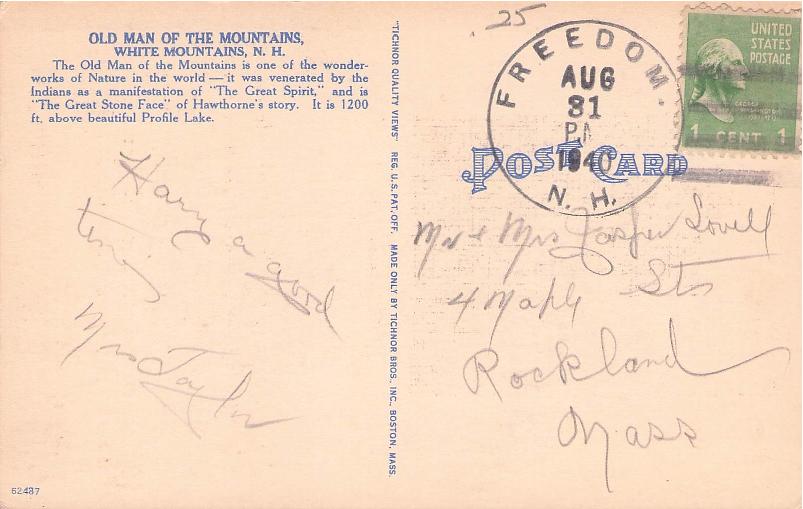 OLD MAN OF THE MOUNTAINS,
WHITE MOUNTAINS, N. H.
The Old Man of the Mountains is one of the wonder-
works of Nature in the world — it was venerated by the
Indians as a manifestation of "The Great Spirit," and is
"The Great Stone Face" of Hawthorne's story. It is 1200
ft. above beautiful Profile Lake.
Having a good
time
Mrs Taylor
62487
"TICHNOR QUALITY VIEWS" REG. U.S. PAT. OFF. MADE ONLY BY TICHNOR BROS., INC., BOSTON, MASS.
.25
FREEDOM.
AUG
31
PM
1940
N. H.
UNITED
STATES
POSTAGE
1 CENT 1
POST CARD
Mr + Mrs Jasper Lovell
4 Maple St.
Rockland
Mass